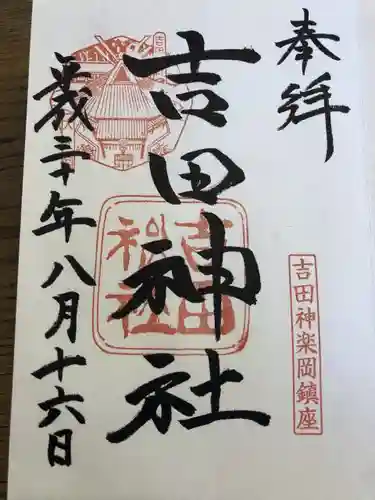 奉拝
吉田神楽岡鎮座
吉田神社
吉田神社
平成三十年八月十六日